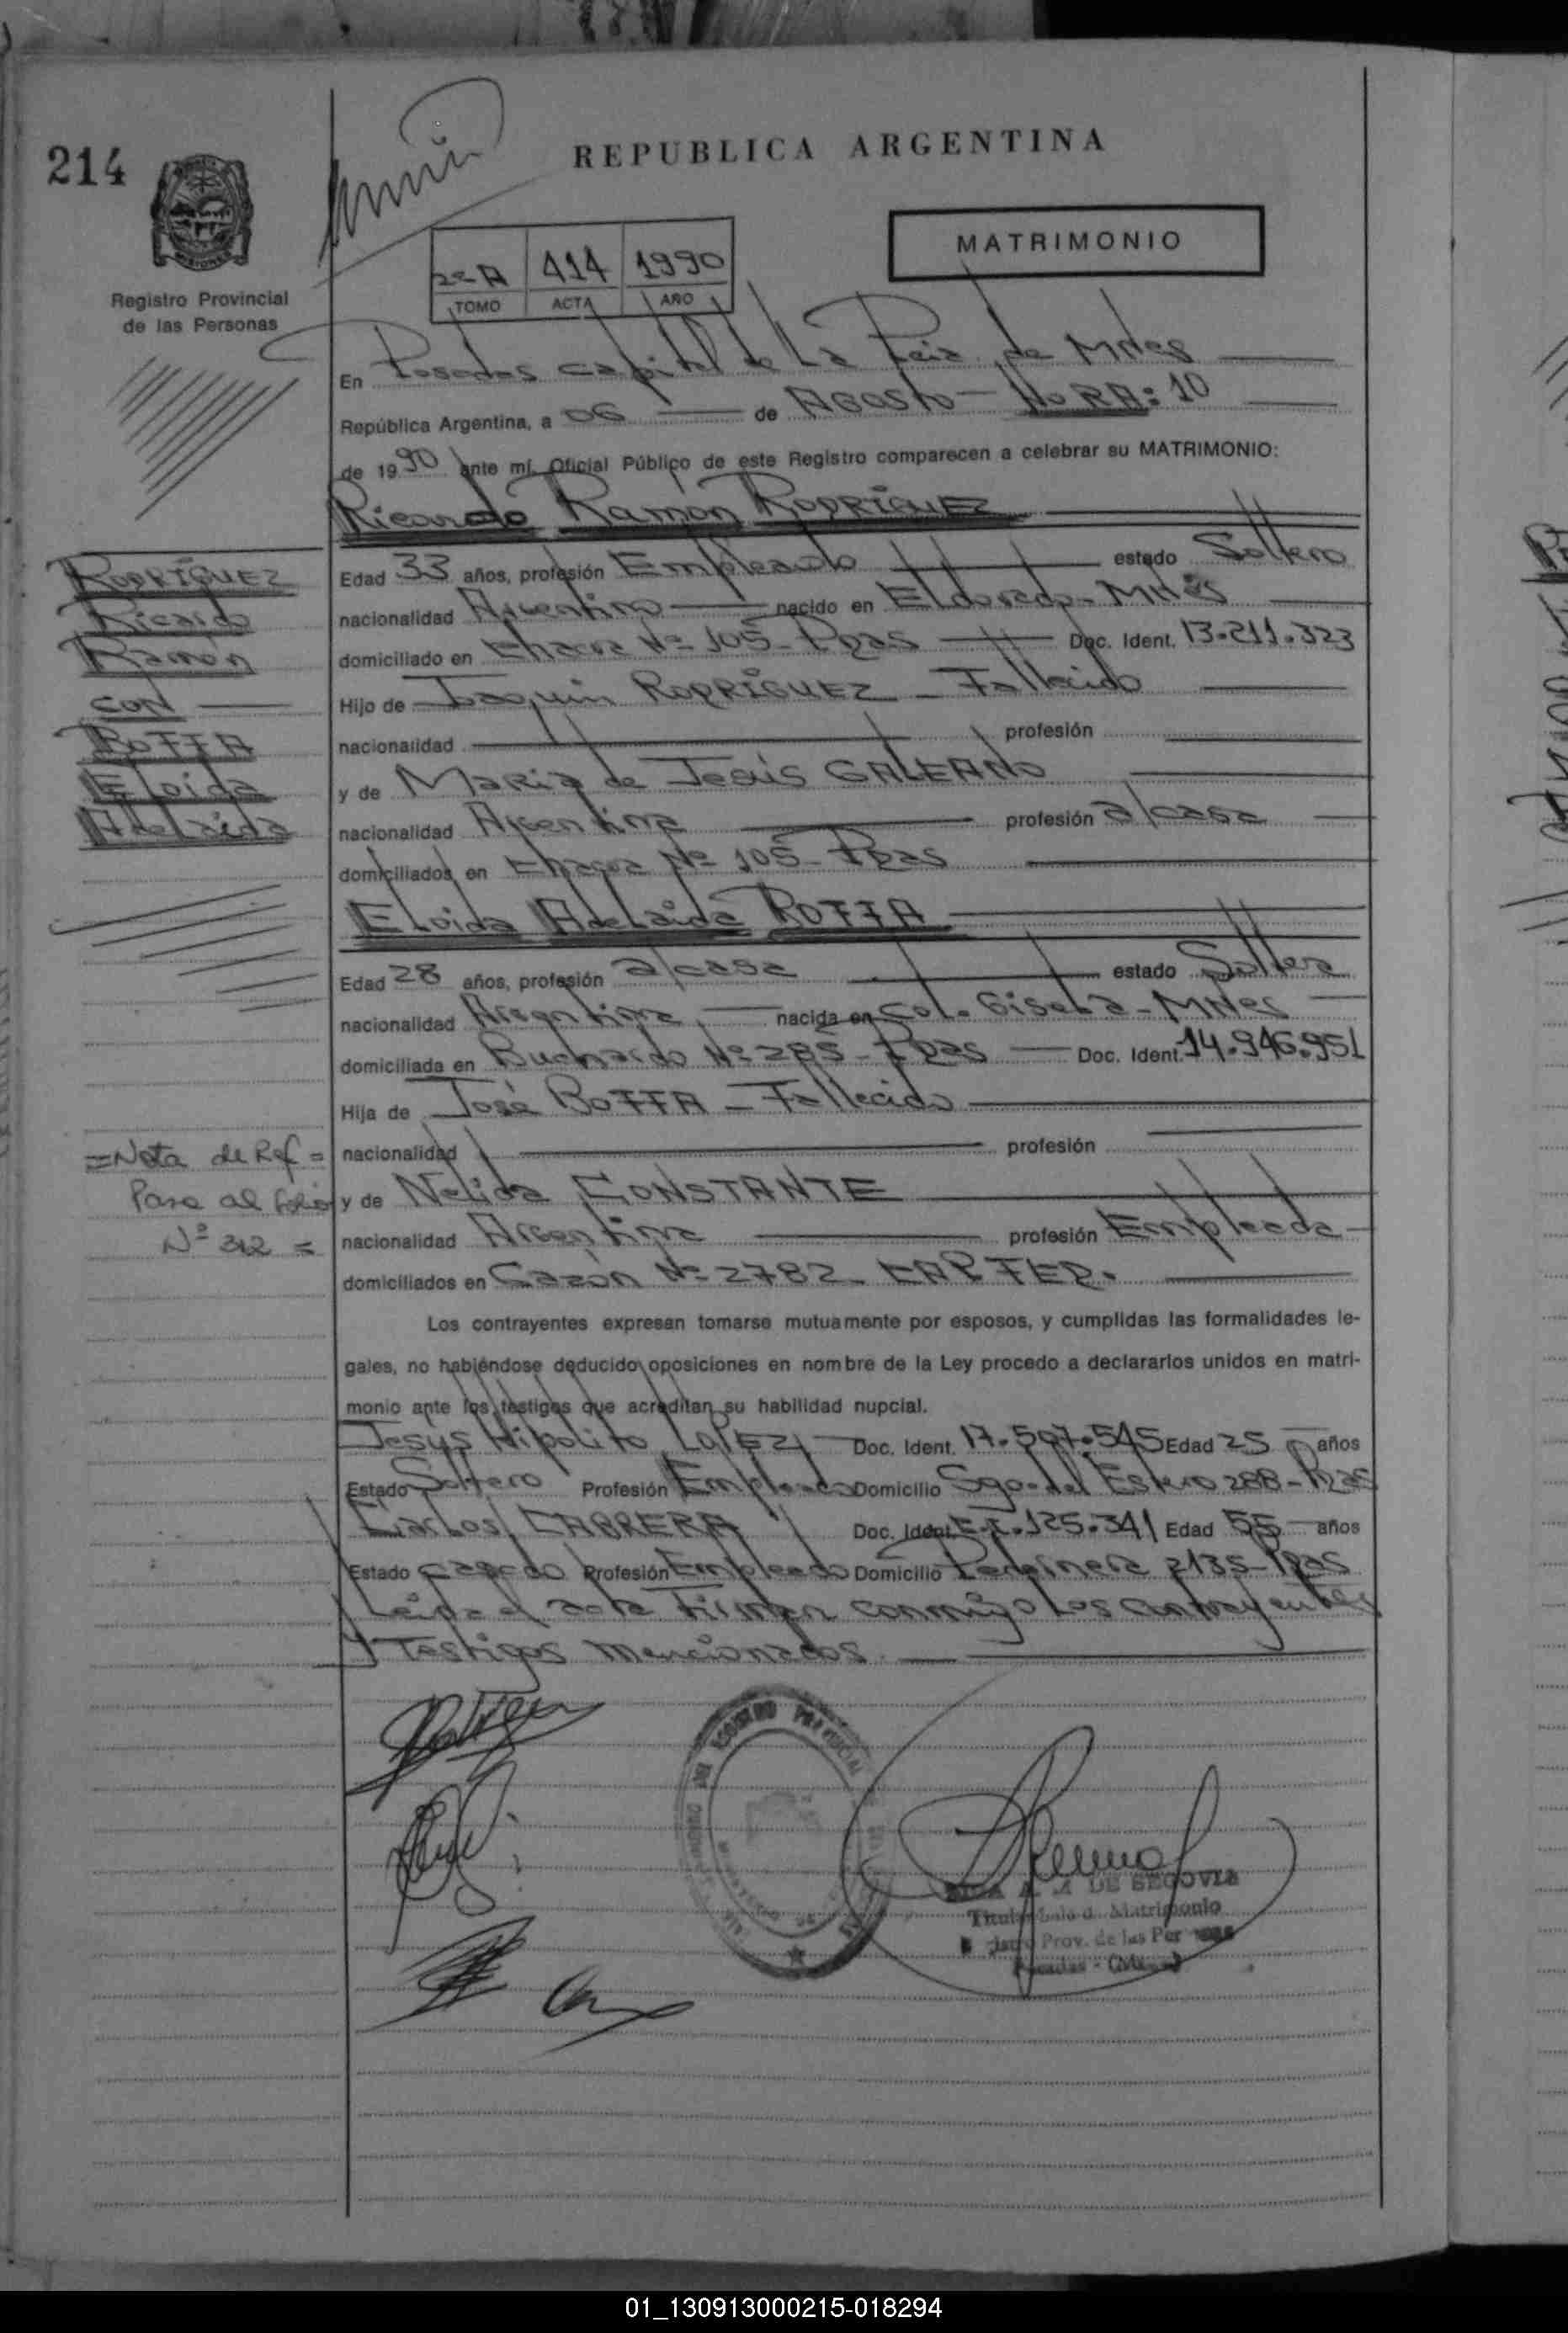 214
REPUBLICA ARGENTINA
MATRIMONIO
2º A 414 1990
TOMO ACTA AÑO
Registro Provincial
de las Personas
En Posadas Capital de La Pcia de Mnes
República Argentina, a 06 de Agosto - HORA: 10
de 1990 ante mí, Oficial Público de este Registro comparecen a celebrar su MATRIMONIO:
Ricardo Ramón RODRÍGUEZ
RODRÍGUEZ
Ricardo
Ramón
CON
ROTTA
Eloida
Adelaida
Edad 33 años, profesión Empleado estado Soltero
nacionalidad Argentino nacido en Eldorado - Mnes
domiciliado en Chacra Nº 105 - Pdas Doc. Ident. 13.211.323
Hijo de Joaquin RODRÍGUEZ - Fallecido
nacionalidad profesión
y de Maria de Jesús GALEANO
nacionalidad Argentina profesión a/casa
domiciliados en Chacra Nº 105 - Pdas
Eloida Adelaida ROTTA
Edad 28 años, profesión a/casa estado Soltera
nacionalidad Argentina nacida en Col. Gisela - Mnes
domiciliada en Buchardo Nº 285 - Pdas Doc. Ident. 14.946.951
Hija de José ROTTA - Fallecido
nacionalidad profesión
y de Nelida CONSTANTE
nacionalidad Argentina profesión Empleada
domiciliados en Cazón Nº 2782 - CAP FED.
= Nota de Ref =
Pase al folio
Nº 312 =
Los contrayentes expresan tomarse mutuamente por esposos, y cumplidas las formalidades le-
gales, no habiéndose deducido oposiciones en nombre de la Ley procedo a declararlos unidos en matri-
monio ante los testigos que acreditan su habilidad nupcial.
Jesús Hipolito LOPEZ Doc. Ident. 17.597.545 Edad 25 años
Estado Soltero Profesión Empleado Domicilio Sgo. del Estero 288 - Pdas
Carlos CABRERA Doc. Ident. C.I. 125.341 Edad 55 años
Estado Casado Profesión Empleado Domicilio Pedernera 2135 - Pdas
Leida el acta Firman conmigo Los Contrayentes
y Testigos Mencionados.
REGISTRO PROVINCIAL
DE SEGOVIA
Matrimonio
Prov. de las Per
01_130913000215-018294